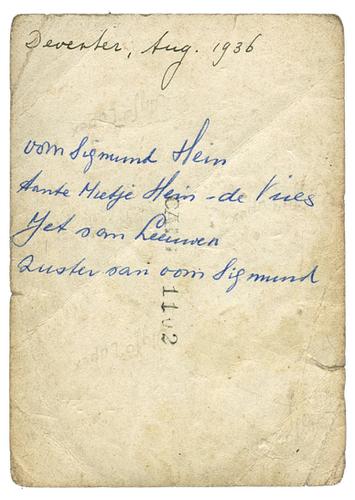 Deventer, Aug. 1936
oom Sigmund Hein
tante Mietje Hein - de Vries
Jet van Leeuwen
zuster van oom Sigmund
1102